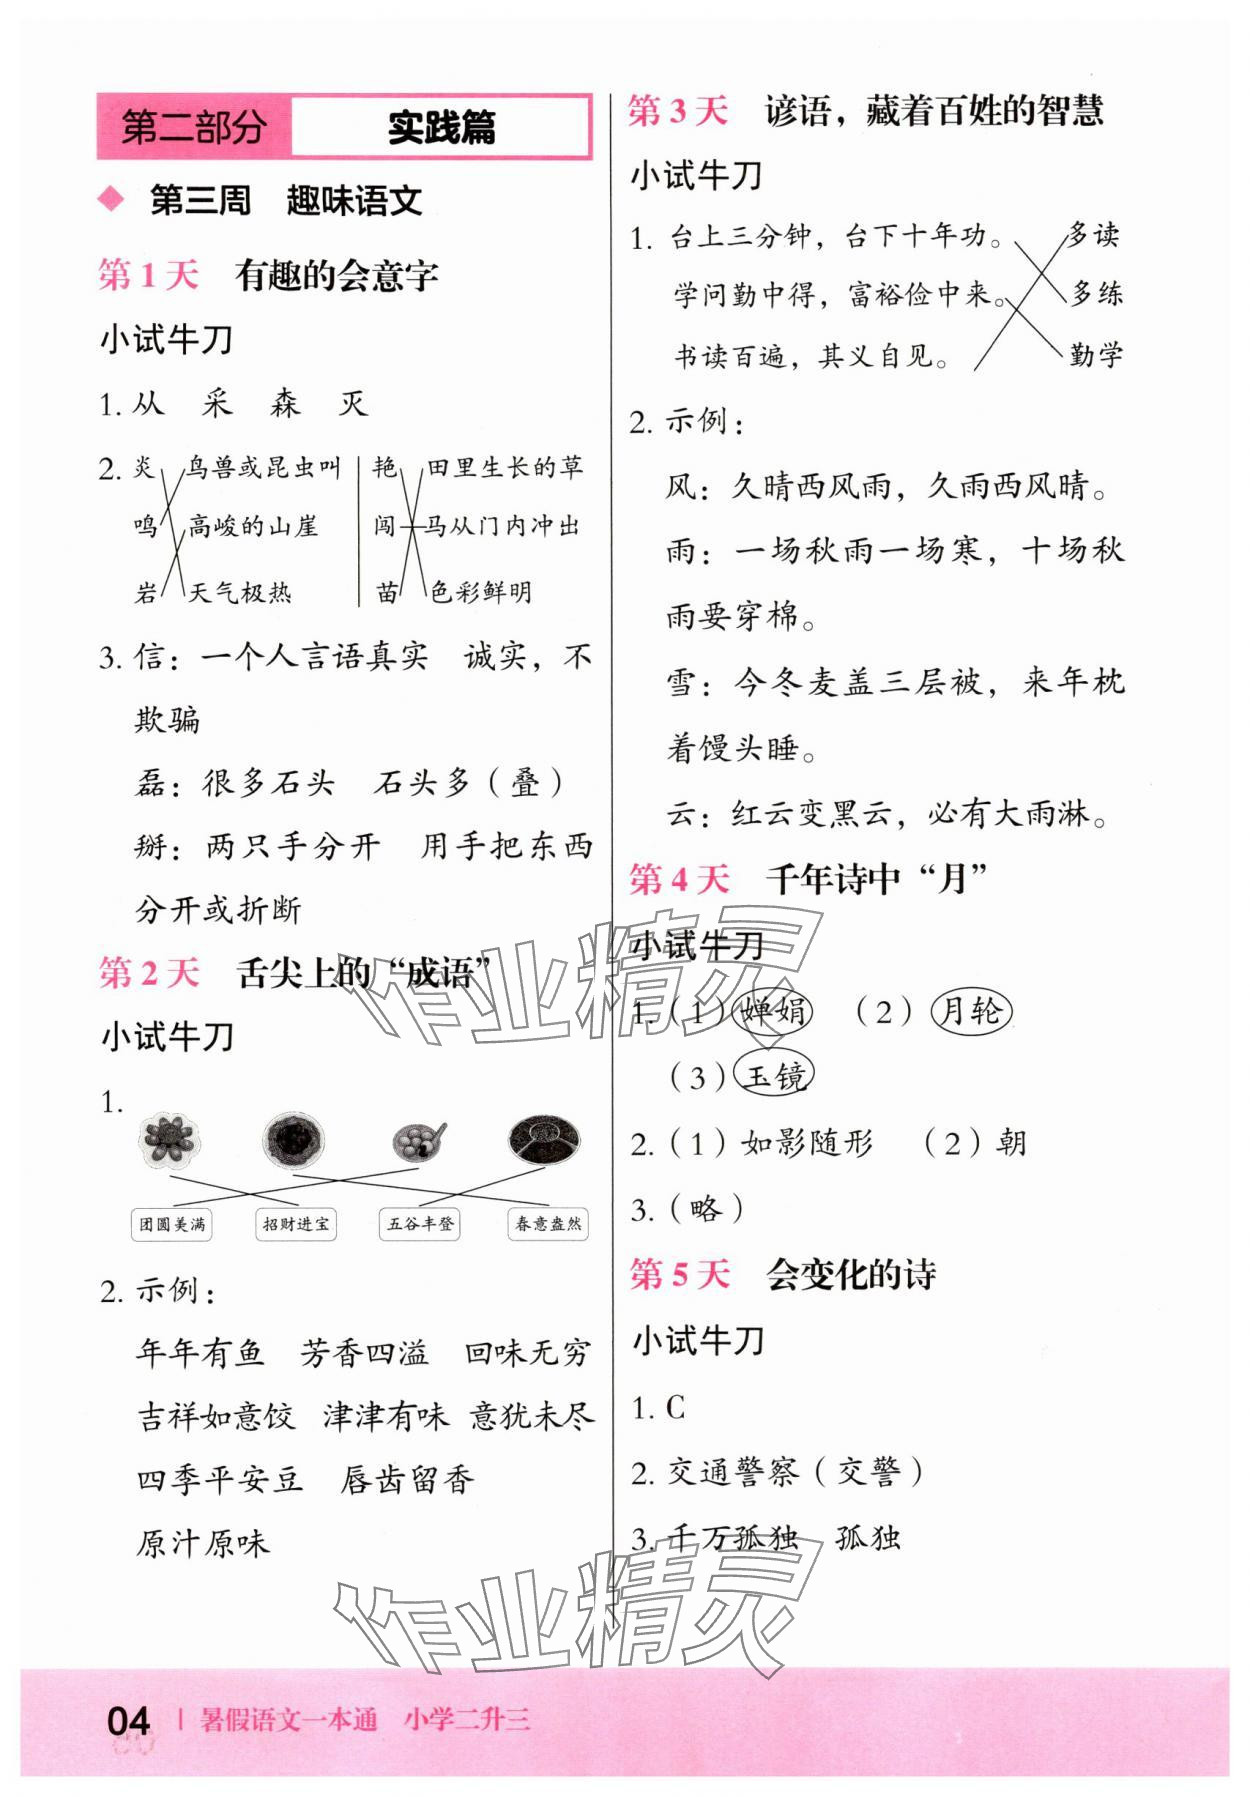 第二部分 实践篇
第三周 趣味语文
第1天 有趣的会意字
小试牛刀
1. 从 采 森 灭
2. 炎 鸟兽或昆虫叫 艳 田里生长的草
鸣 高峻的山崖 闯 马从门内冲出
岩 天气极热 苗 色彩鲜明
3. 信：一个人言语真实 诚实，不
欺骗
磊：很多石头 石头多（叠）
掰：两只手分开 用手把东西
分开或折断
第2天 舌尖上的“成语”
小试牛刀
1.
团圆美满 招财进宝 五谷丰登 春意盎然
2. 示例：
年年有鱼 芳香四溢 回味无穷
吉祥如意饺 津津有味 意犹未尽
四季平安豆 唇齿留香
原汁原味
第3天 谚语，藏着百姓的智慧
小试牛刀
1. 台上三分钟，台下十年功。 多读
学问勤中得，富裕俭中来。 多练
书读百遍，其义自见。 勤学
2. 示例：
风：久晴西风雨，久雨西风晴。
雨：一场秋雨一场寒，十场秋
雨要穿棉。
雪：今冬麦盖三层被，来年枕
着馒头睡。
云：红云变黑云，必有大雨淋。
第4天 千年诗中“月”
小试牛刀
1.（1）婵娟 （2）月轮
（3）玉镜
2.（1）如影随形 （2）朝
3.（略）
第5天 会变化的诗
小试牛刀
1. C
2. 交通警察（交警）
3. 千万孤独 孤独
作业精灵
作业精灵
04 | 暑假语文一本通 小学二升三